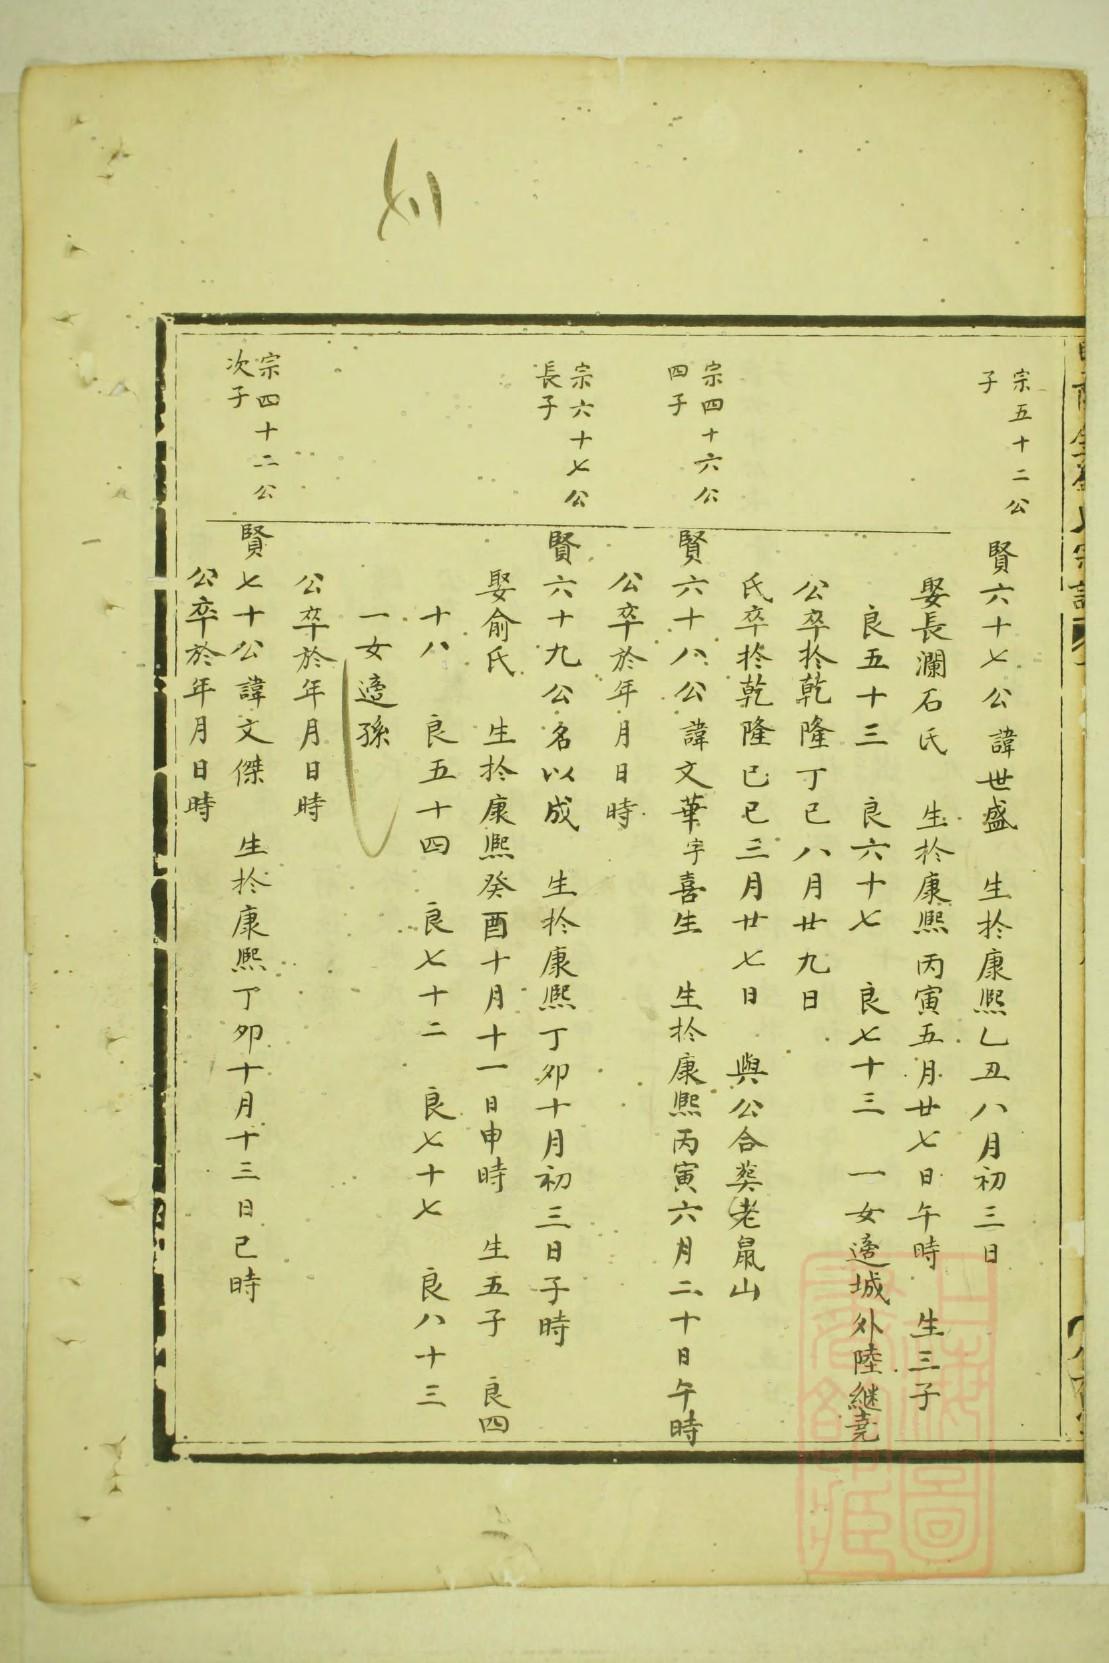 宗五十二公
子
賢六十七公諱世盛 生於康熙乙丑八月初三日
娶長瀾石氏 生於康熙丙寅五月廿七日午時 生三子
良五十三 良六十七 良七十三 一女適城外陸継堯
公卒於乾隆丁巳八月廿九日
氏卒於乾隆己巳三月廿七日 與公合葬老鼠山
宗四十六公
四子
賢六十八公諱文華字喜生 生於康熙丙寅六月二十日午時
公卒於年月日時
宗六十七公
長子
賢六十九公名以成 生於康熙丁卯十月初三日子時
娶俞氏 生於康熙癸酉十月十一日申時 生五子 良四
十八 良五十四 良七十二 良七十七 良八十三
一女適孫
公卒於年月日時
宗四十二公
次子
賢七十公諱文傑 生於康熙丁卯十月十三日巳時
公卒於年月日時